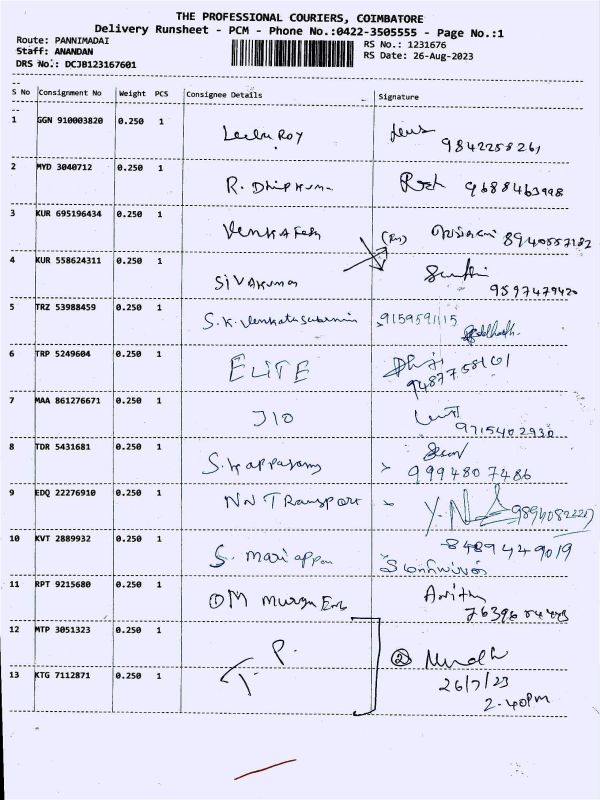 THE PROFESSIONAL COURIERS, COIMBATORE
Delivery Runsheet - PCM - Phone No.:0422-3505555 - Page No.:1
Route: PANNIMADAI
Staff: ANANDAN
DRS No.: DCJB123167601
RS No.: 1231676
RS Date: 26-Aug-2023
S No Consignment No Weight PCS Consignee Details Signature
1 GGN 910003820 0.250 1 Leelu Roy
9842258261
2 MYD 3040712 0.250 1 R. Dhilpkumar 9688463998
3 KUR 695196434 0.250 1 Venkatesh 8940557182
4 KUR 558624311 0.250 1 SIVAKumar
9597479420
5 TRZ 53988459 0.250 1 S.K. Venkatasubramni 9159591115
6 TRP 5249604 0.250 1 ELITE
9487758161
7 MAA 861276671 0.250 1 JIO
9715402930
8 TDR 5431681 0.250 1 S. Kappasamy
9994807486
9 EDQ 22276910 0.250 1 NN Transport Y.
10 KVT 2889932 0.250 1 S. mariappan 8489449019
11 RPT 9215680 0.250 1 ① OM Murugan
12 MTP 3051323 0.250 1 T. P. ②
13 KTG 7112871 0.250 1 26/7/23
2.40pm